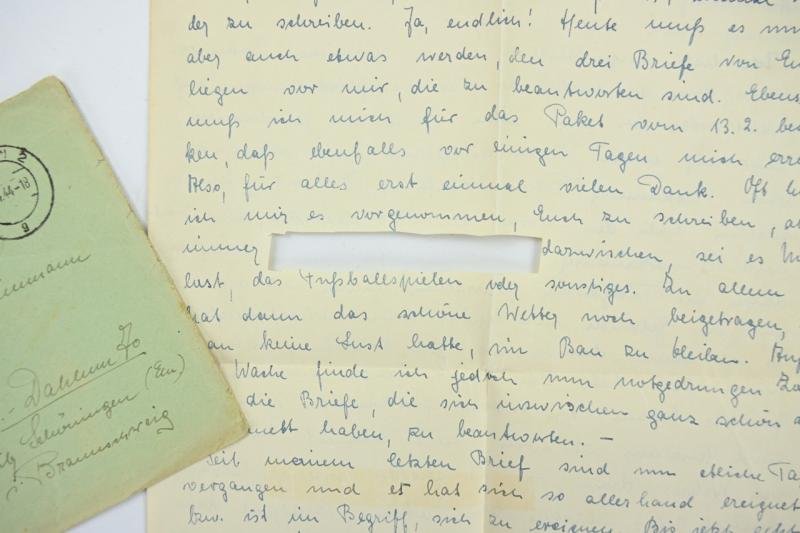 der zu schreiben. Ja, endlich! Heute muß es nun
aber auch etwas werden, den drei Briefe von
liegen vor mir, die zu beantworten sind.
muß ich mich für das Paket vom 13.2.
ken, daß ebenfalls vor einigen Tagen mich
Also, für alles erst einmal vielen Dank. Oft
ich mir es vorgenommen, Euch zu schreiben,
immer dazwischen, sei es
lust, das Fußballspielen oder sonstiges. Zu allem
hat dann das schöne Wetter noch beigetragen,
keine Lust hatte, im Bau zu bleiben.
Wache finde ich jedoch nun notgedrungen
die Briefe, die sich inzwischen ganz schön
haben, zu beantworten. –
Seit meinem letzten Brief sind nun etliche
vergangen und es hat sich so allerhand ereignet
bzw. ist im Begriff, sich zu ereignen. Bis jetzt
44-18
Dahlum
Schöningen (Elm)
Braunschweig